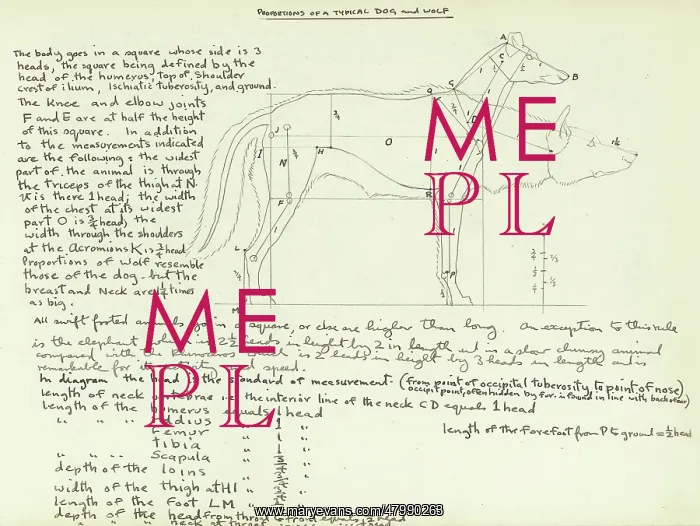 PROPORTIONS OF A TYPICAL DOG and WOLF
The body goes in a square whose side is 3
heads, the square being defined by the
head of the humerus, Top of Shoulder
crest of ilium, Ischiatic tuberosity, and ground.
The Knee and elbow joints
F and E are at half the height
of this square. In addition
to the measurements indicated
are the following: the widest
part of the animal is through
the triceps of the thigh at N.
it is there 1 head; the width
of the chest at its widest
part O is 3/4 head; the
width through the shoulders
at the Acromions K is 3/4 head
Proportions of Wolf resemble
those of the dog - but the
breast and Neck are 1 1/4 times
as big.
A
C
B
G
G
D
J
I
N
H
O
F
R
L
P
M
3/4
1 1/4
ME
PL
ME
PL
All swift footed animals go in a square, or else are higher than long. An exception to this rule
is the elephant which is 2 1/2 heads in height by 2 in length but is a slow clumsy animal
compared with the Rhinoceros which is 2 heads in height by 3 heads in length and is
remarkable for its speed.
In diagram the head is the standard of measurement. (from point of occipital tuberosity to point of nose)
occipital point, often hidden by fur, is found in line with back of ear)
length of neck vertebrae i.e. the interior line of the neck CD equals 1 head
length of the humerus equals 1 head
" " " radius " 1 "
Femur
Tibia
" " " Scapula
depth of the loins
width of the thigh at HI
length of the foot LM
depth of the head from throat to
neck at throat
length of the forefoot from P to ground = 1/2 head
www.maryevans.com/47990263